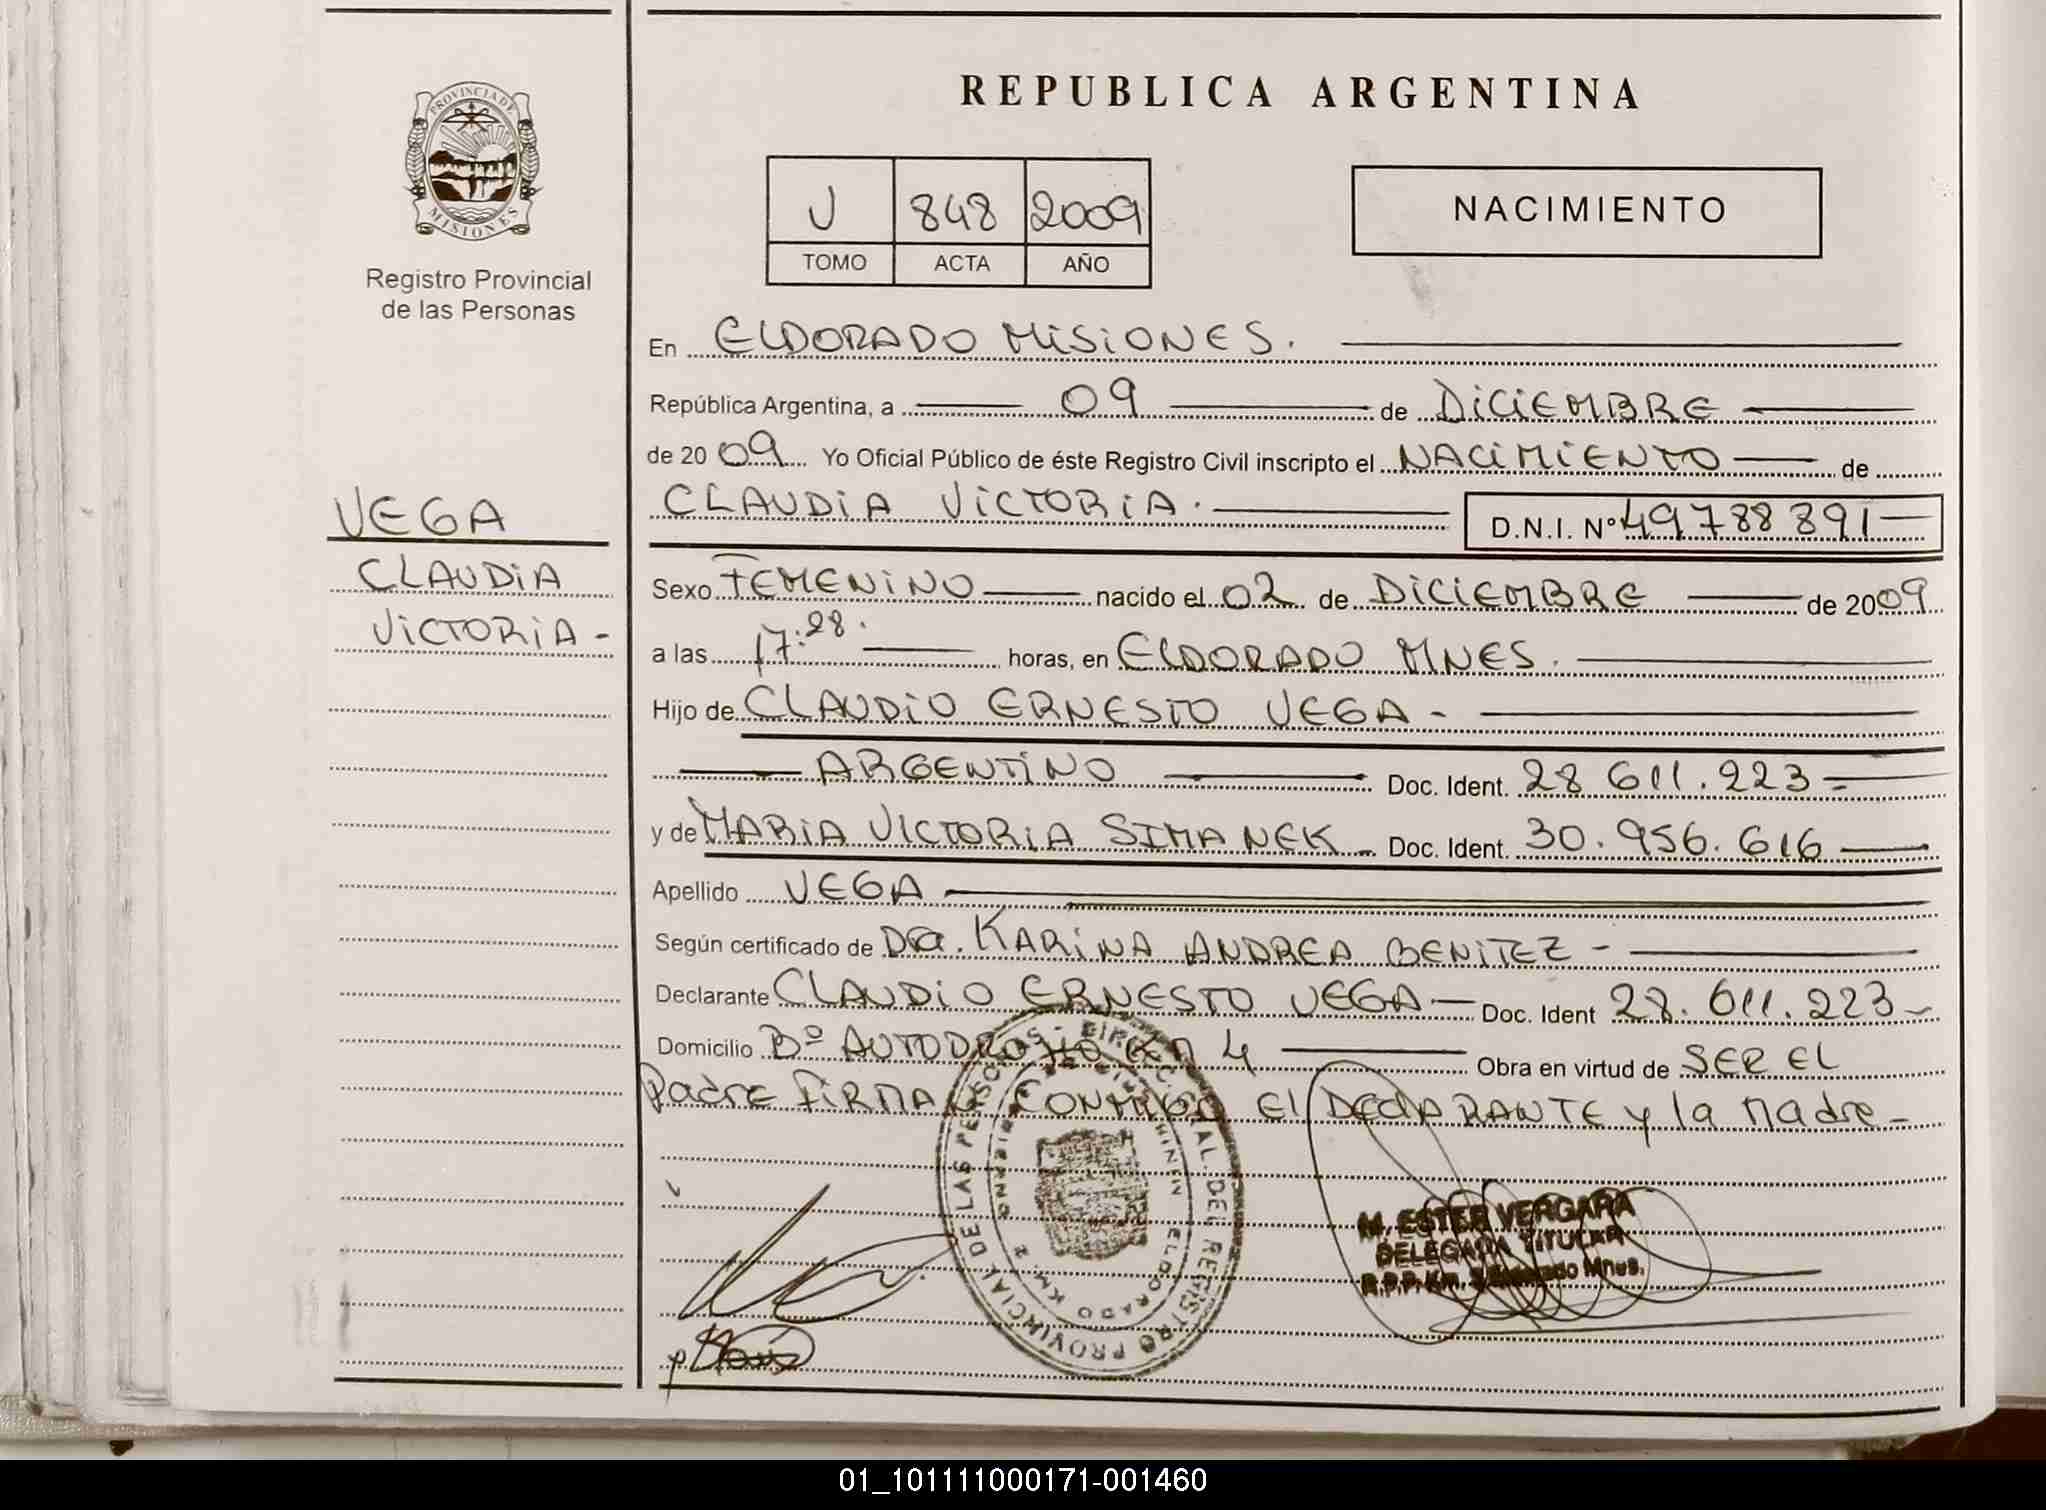 REPUBLICA ARGENTINA
PROVINCIA DE
MISIONES
Registro Provincial
de las Personas
J 848 2009
TOMO ACTA AÑO
NACIMIENTO
En ELDORADO MISIONES.
República Argentina, a 09 de DICIEMBRE
de 20 09 Yo Oficial Público de éste Registro Civil inscripto el NACIMIENTO de
CLAUDIA VICTORIA. D.N.I. Nº 49788891
VEGA
CLAUDIA
VICTORIA -
Sexo FEMENINO nacido el 02 de DICIEMBRE de 2009
a las 17:28. horas, en ELDORADO MNES.
Hijo de CLAUDIO ERNESTO VEGA -
ARGENTINO Doc. Ident. 28 611.223 =
y de MARIA VICTORIA SIMANEK - Doc. Ident. 30.956.616
Apellido VEGA
Según certificado de Dra. KARINA ANDREA BENITEZ -
Declarante CLAUDIO ERNESTO VEGA - Doc. Ident 28.611.223 -
Domicilio Bº AUTODROMO Km 4 Obra en virtud de SER EL
Padre FIRMAN CONMIGO El DEClARANTE y la Madre -
DEL REGISTRO PROVINCIAL DE LAS PERSONAS
ELDORADO KM. 2
M. ESTER VERGARA
DELEGADA TITULAR
R.P.P. Km. Eldorado Mnes.
01_101111000171-001460